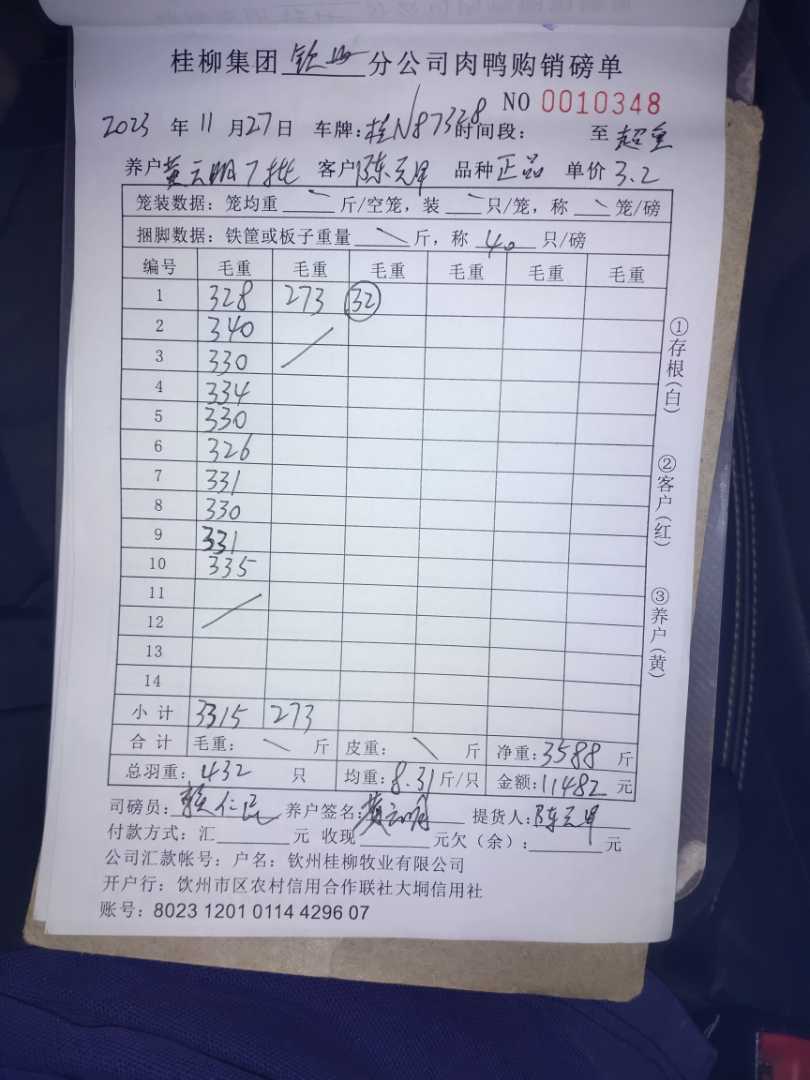 桂柳集团 钦州 分公司肉鸭购销磅单
NO 0010348
2023 年 11 月 27 日 车牌:桂N87328 时间段: 至 超重
养户 黄云明7批 客户 陈 品种 正品 单价 3.2
笼装数据:笼均重 \ 斤/空笼,装 \ 只/笼,称 \ 笼/磅
捆脚数据:铁筐或板子重量 \ 斤,称 40 只/磅
编号 毛重 毛重 毛重 毛重 毛重 毛重
1 328 273 32
2 340
3 330 /
4 334
5 330
6 326
7 331
8 330
9 331
10 335
11
12 /
13
14
小计 3315 273
合计 毛重: \ 斤 皮重: \ 斤 净重:3588 斤
总羽重:432 只 均重:8.31 斤/只 金额:11482 元
司磅员: 赖仁民 养户签名: 黄云明 提货人: 陈
付款方式:汇 元 收现 元欠(余): 元
公司汇款帐号:户名:钦州桂柳牧业有限公司
开户行:钦州市区农村信用合作联社大垌信用社
账号:8023 1201 0114 4296 07
①存根(白)
②客户(红)
③养户(黄)